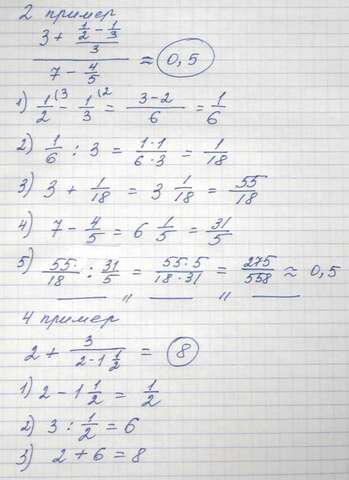 2 пример
(3 + (1/2 - 1/3)/3)/(7 - 4/5) ≈ 0,5
1) 1/2 (3 - 1/3 (2 = (3-2)/6 = 1/6
2) 1/6 : 3 = (1·1)/(6·3) = 1/18
3) 3 + 1/18 = 3 1/18 = 55/18
4) 7 - 4/5 = 6 1/5 = 31/5
5) 55/18 : 31/5 = (55·5)/(18·31) = 275/558 ≈ 0,5
—— " —— " ——
4 пример
2 + 3/(2-1 1/2) = 8
1) 2 - 1 1/2 = 1/2
2) 3 : 1/2 = 6
3) 2 + 6 = 8